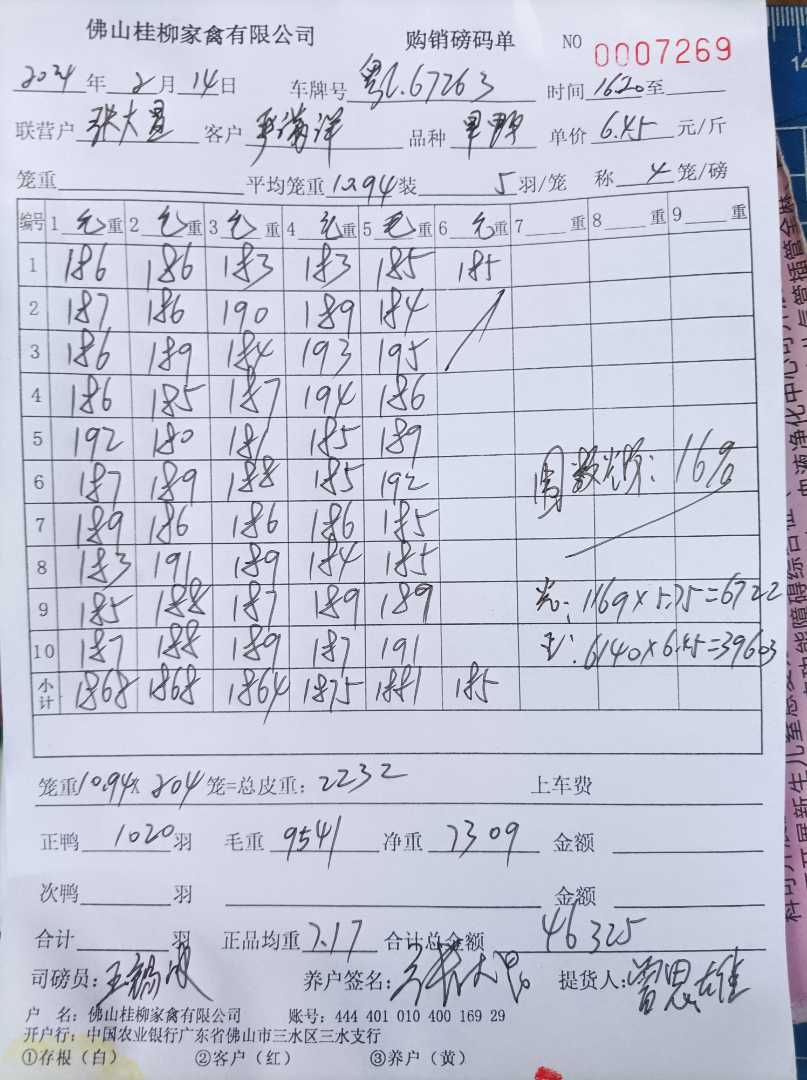 佛山桂柳家禽有限公司 购销磅码单 NO 0007269
2024年2月14日 车牌号 粤L.67263 时间 1620至
联营户 张大 客户 品种 单价 6.45 元/斤
笼重 平均笼重 10.94 装 5 羽/笼 称 4 笼/磅
编号 1 毛重 2 毛重 3 毛重 4 毛重 5 毛重 6 毛重 7 重 8 重 9 重
1 186 186 183 183 185 185
2 187 186 190 189 184
3 186 189 184 193 195
4 186 185 187 194 186
5 192 180 181 185 189
6 187 189 188 185 192
7 189 186 186 186 185
8 183 191 189 184 185
9 185 188 187 189 189
10 187 188 189 187 191
小计 1868 1868 1864 1875 1881 185
数 : 1169
: 1169×5.75=6722
毛: 6140×6.45=39603
笼重 10.94× 204 笼=总皮重: 2232 上车费
正鸭 1020 羽 毛重 9541 净重 7309 金额
次鸭 羽 金额
合计 羽 正品均重 7.17 合计总金额 46325
司磅员: 王 养户签名: 张大 提货人: 思雄
户 名: 佛山桂柳家禽有限公司 账号: 444 401 010 400 169 29
开户行: 中国农业银行广东省佛山市三水区三水支行
①存根（白） ②客户（红） ③养户（黄）